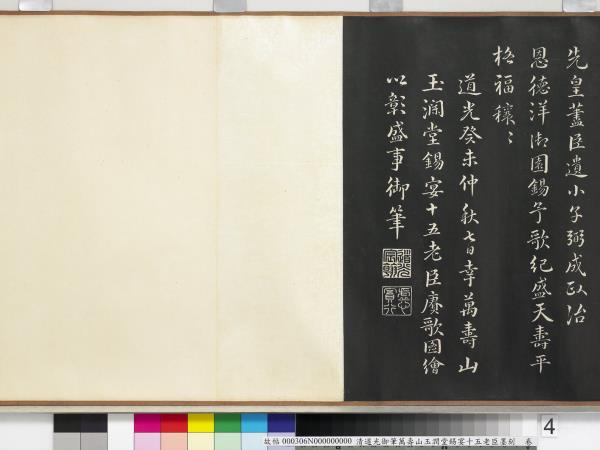 先皇藎臣遺小子弼成郅治
恩德洋御園錫予歌紀盛天壽平
格福穰〻
道光癸未仲秋七日幸萬壽山
玉瀾堂錫宴十五老臣賡歌圖繪
以彰盛事御筆
4
故帖 000306N000000000 清道光御筆萬壽山玉潤堂錫宴十五老臣墨刻 卷